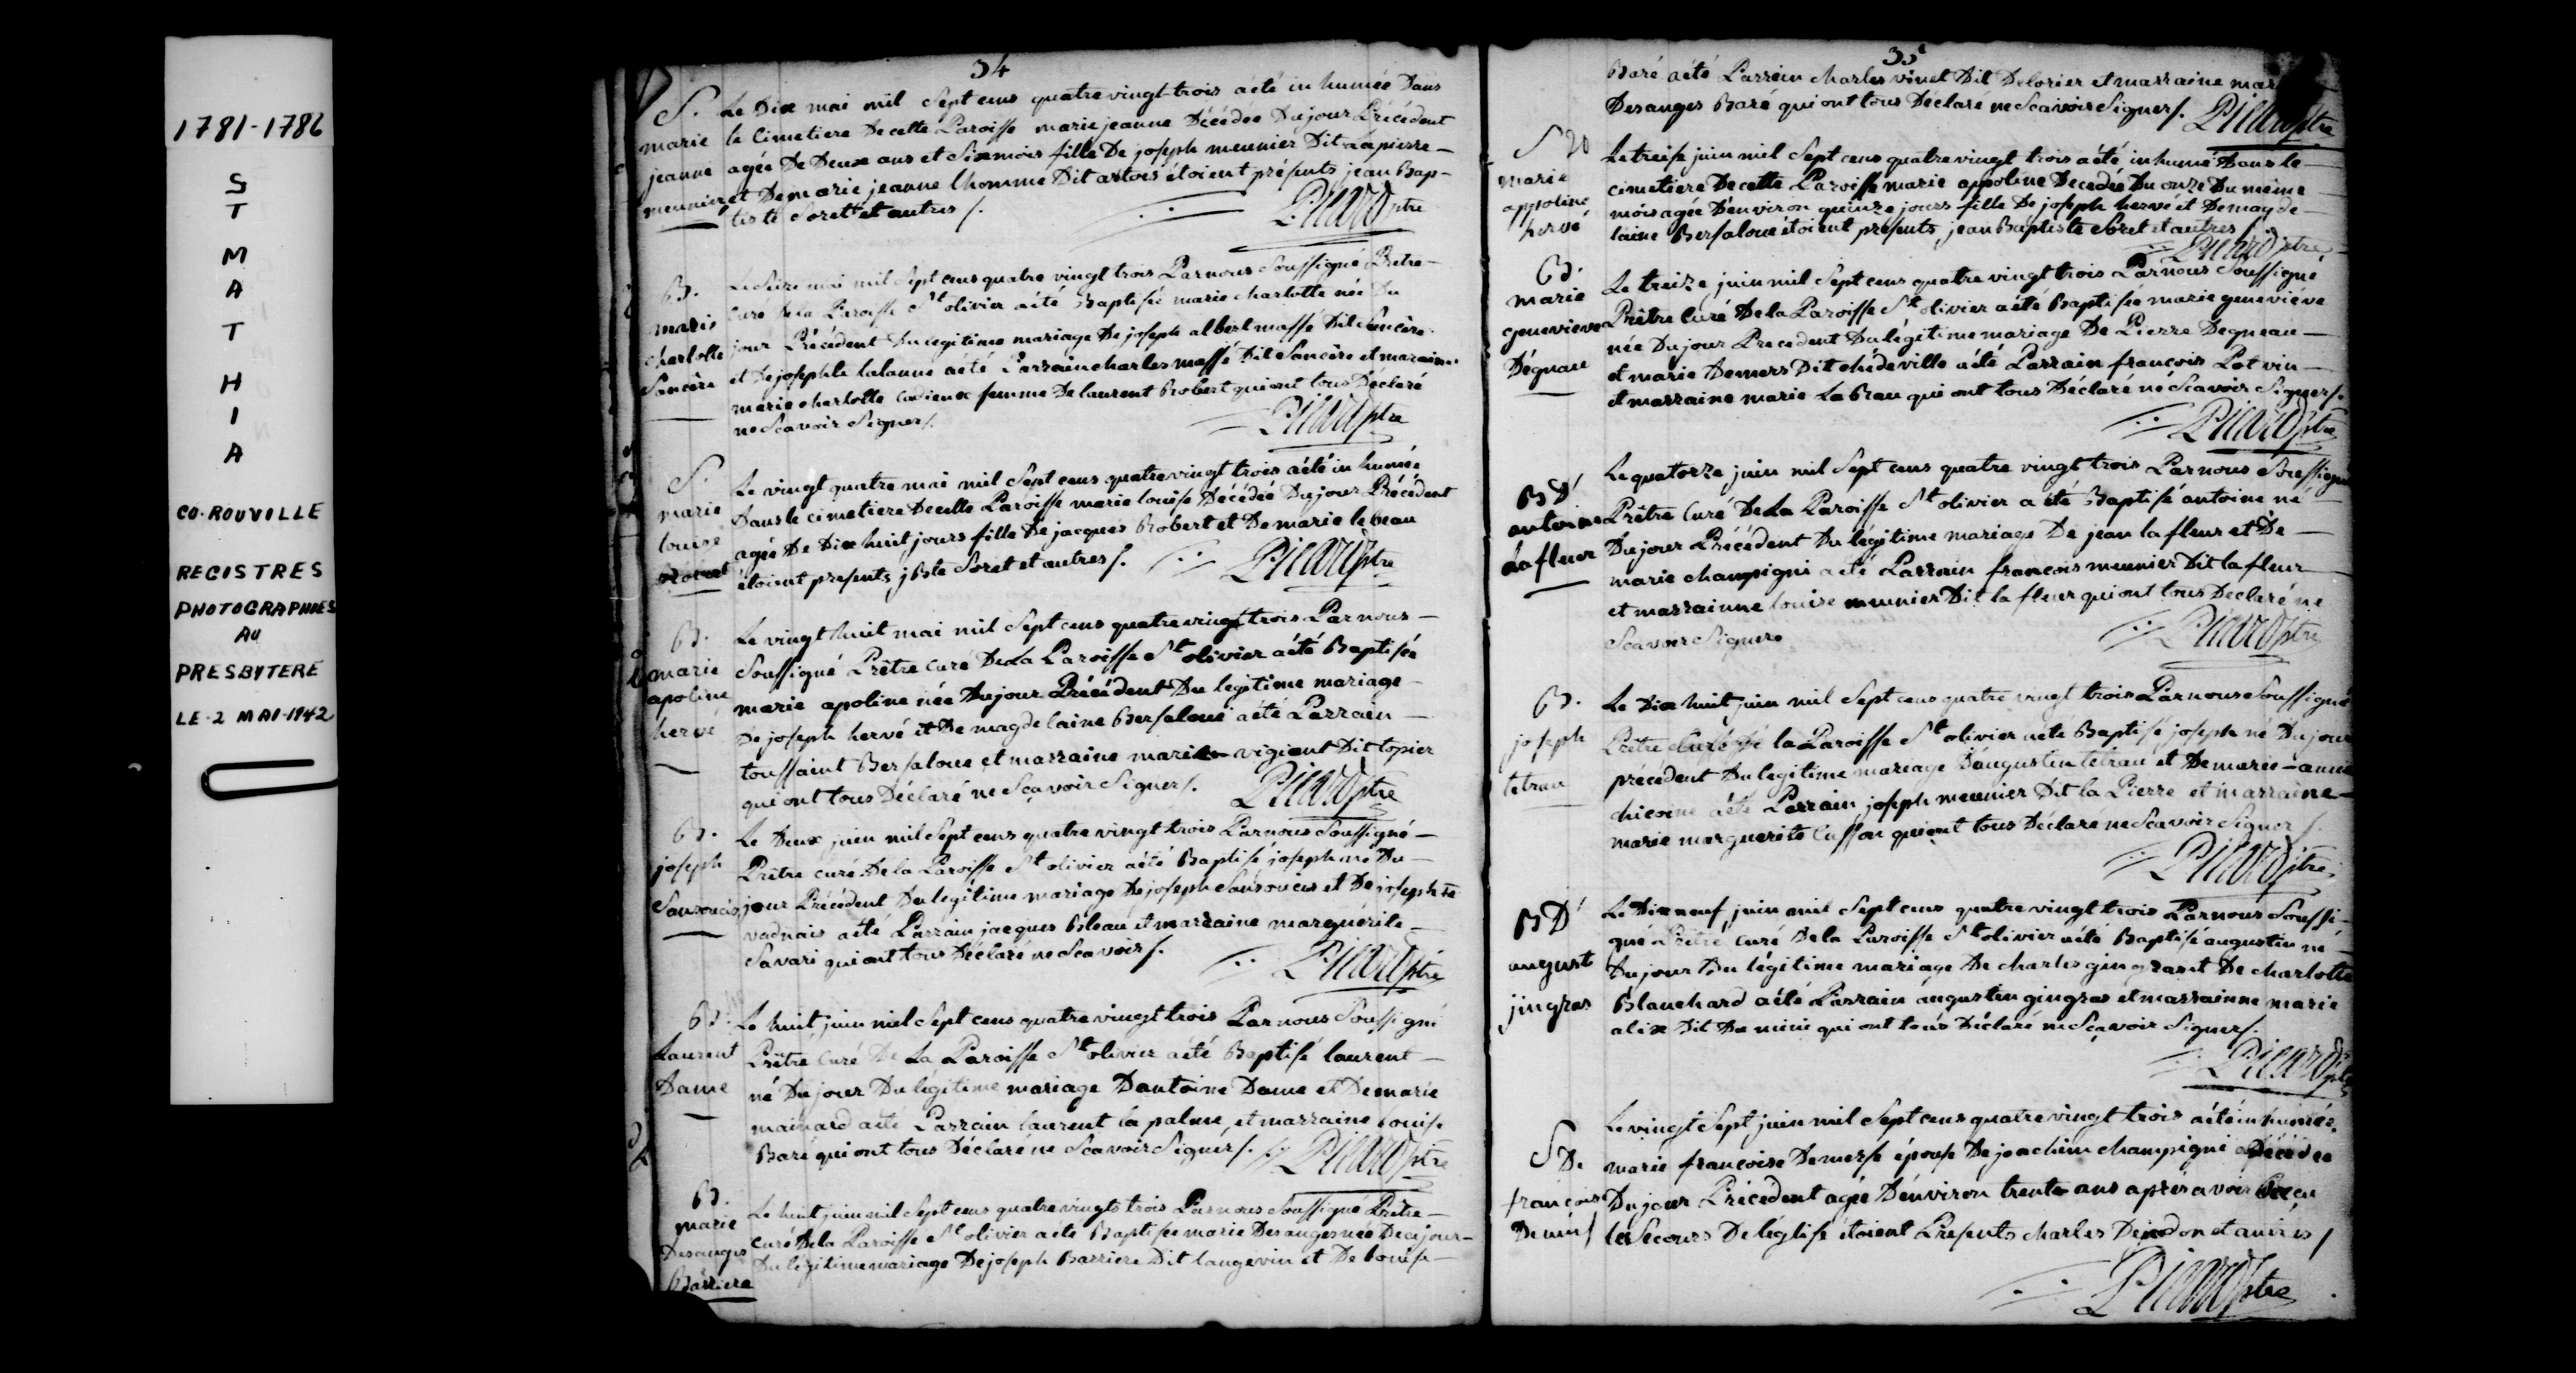 1781-1786
ST
MATTHIA
CO. ROUVILLE
REGISTRES
PHOTOGRAPHIES
AU
PRESBYTERE
LE 2 MAI-1942
34
S.
marie
jeanne
meunier
Le Dix mai mil Sept cens quatre vingt-trois a été in humée Dans
le Cimetiere De cette Paroisse marie jeanne Décédée Du jour Précédent
agée De Deux ans et Six mois fille De joseph meunier Dit Lapierre
et De marie jeanne lhomme Dit artois étoient présents jean Bap-
tiste Soret et autres /.
Picard ptre
B.
marie
charlotte
Sancère
Le Seize mai mil Sept cens quatre vingt trois Par nous Soussigné Prêtre
Curé De la Paroisse St olivier a été Baptisée marie charlotte née Du
jour Précédent Du legitime mariage De joseph albert massé Dit Sancère
et De josephte lalanne a été Parrain charles massé Dit Sancère et maraine
marie charlotte Cadieux femme De laurent Robert qui ont tous Déclaré
ne Scavoir Signer /.
Picard ptre
S.
marie
louise
Robert
Le vingt quatre mai mil Sept cens quatre vingt trois a été in humée
Dans le cimetiere De cette Paroisse marie louise Décédée Du jour Précédent
agée De Dix huit jours fille De jacques Robert et De marie lebeau
étoient presents j Bte Soret et autres /.
Picard ptre
B.
marie
apoline
hervé
Le vingt huit mai mil Sept cens quatre vingt trois Par nous
Soussigné Prêtre Curé De La Paroisse St olivier a été Baptisée
marie apoline née Du jour Précédent Du legitime mariage
De joseph hervé et De magdelaine Bersaloue a été Parrain
toussaint Bersaloue et marraine marie vigient Dit topier
qui ont tous Déclaré ne Scavoir Signer /.
Picard ptre
B.
joseph
Sansoucis
Le Deux juin mil Sept cens quatre vingt trois Par nous Soussigné
Prêtre curé De la Paroisse St olivier a été Baptisé joseph né Du
jour Précédent Du legitime mariage De joseph Sansoucis et De josephte
vadnais a été Parrain jacques Bleau et marraine marguerite
Savari qui ont tous Déclaré ne Scavoir /.
Picard ptre
B.
Laurent
Dame
Le huit juin mil Sept cens quatre vingt trois Par nous Soussigné
Prêtre Curé De La Paroisse St olivier a été Baptisé laurent
né Du jour Du légitime mariage D antoine Dame et De marie
mainard a été Parrain laurent la palme, et marraine louise
Baré qui ont tous Déclaré ne Scavoir Signer /.
Picard ptre
B.
marie
Desanges
Barriere
Le huit juin mil Sept cens quatre vingts trois Par nous Soussigné Prêtre
curé De la Paroisse St olivier a été Baptisée marie Desanges née De ce jour
Du légitime mariage De joseph Barriere Dit langevin et De louise
35
Baré a été Parrain charles vinet Dit Delorier et marraine mar
Desanges Baré qui ont tous Déclaré ne Scavoir Signer /.
Picard ptre
S
marie
appoline
hervé
Le treise juin mil Sept cens quatre vingt trois a été inhumé Dans le
cimetiere De cette Paroisse marie appoline Decedée Du onze Du même
mois agée D'environ quinze jours fille De joseph hervé et De magde
laine Bersaloue étoient présents, jean Baptiste Soret et autres /
Picard ptre
B.
marie
genevieve
Dégnau
Le treize juin mil Sept cens quatre vingt trois Par nous Soussigné
Prêtre Curé De la Paroisse St olivier a été Baptisée marie geneviéve
née Du jour Precedent Du légitime mariage De Pierre Degneau
et marie Demers Dit chédeville a été Parrain francois Potvin
et marraine marie La Beau qui ont tous Déclaré ne Scavoir Signer /.
Picard ptre
B D
antoine
Lafleur
Le quatorze juin mil Sept cens quatre vingt trois Par nous Soussigné
Prêtre Curé De La Paroisse St olivier a été Baptisé antoine né
Du jour Précédent Du légitime mariage De jean lafleur et De
marie champigni a été Parrain francois meunier Dit lafleur
et marrainne louise meunier Dit la fleur qui ont tous Declaré ne
Scavoir Signer
Picard ptre
B.
joseph
tetrau
Le Dix huit juin mil Sept cens quatre vingt trois Par nous Soussigné
Prêtre Curé De la Paroisse St olivier a été Baptisé joseph né Du jour
précédent Du legitime mariage D'augustin tétrau et De marie-anne
chicoine a été Parrain joseph meunier Dit la Pierre et marraine
marie marguerite Casson qui ont tous Déclaré ne Scavoir Signer /.
Picard ptre
B D
august
jingras
Le Dix neuf juin mil Sept cens quatre vingt trois Par nous Soussi-
gné Prêtre Curé De la Paroisse St olivier a été Baptisé augustin né
Du jour Du légitime mariage De charles gingras et De charlotte
Blanchard a été Parrain augustin gingras et marrainne marie
alix Dit Du mini qui ont tous Déclaré ne Scavoir Signer /.
Picard ptre
S De
francoise
Demers
Le vingt Sept juin mil Sept cens quatre vingt trois a été inhumée
marie francoise Demerse épouse De joachim champigni Décédée
Du jour Précédent agée D'environ trente ans après avoir Reçu
les Secours De l'église étoient Présents charles Dejadon et autres /
Picard ptre